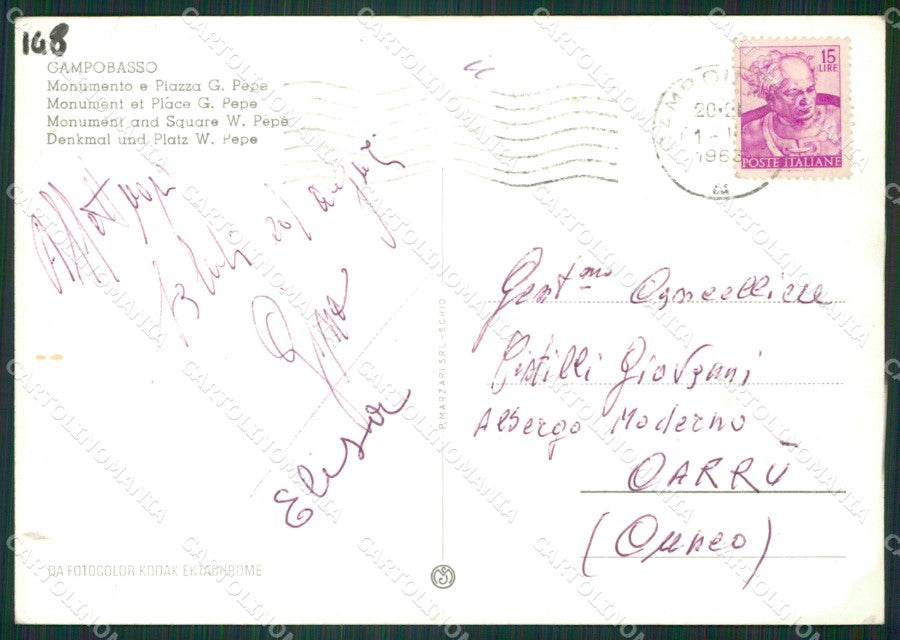 168
CAMPOBASSO
Monumento e Piazza G. Pepe
Monument et Place G. Pepe
Monument and Square W. Pepe
Denkmal und Platz W. Pepe
15
LIRE
POSTE ITALIANE
1963
Affettuosi
saluti ed auguri
Elisa
Gent.mo Cancelliere
Gistilli Giovanni
Albergo Moderno
CARRÙ
(Cuneo)
P. MARZARI S.R.L. - SCHIO
DA FOTOCOLOR KODAK EKTACHROME
CARTOLINOMANIA